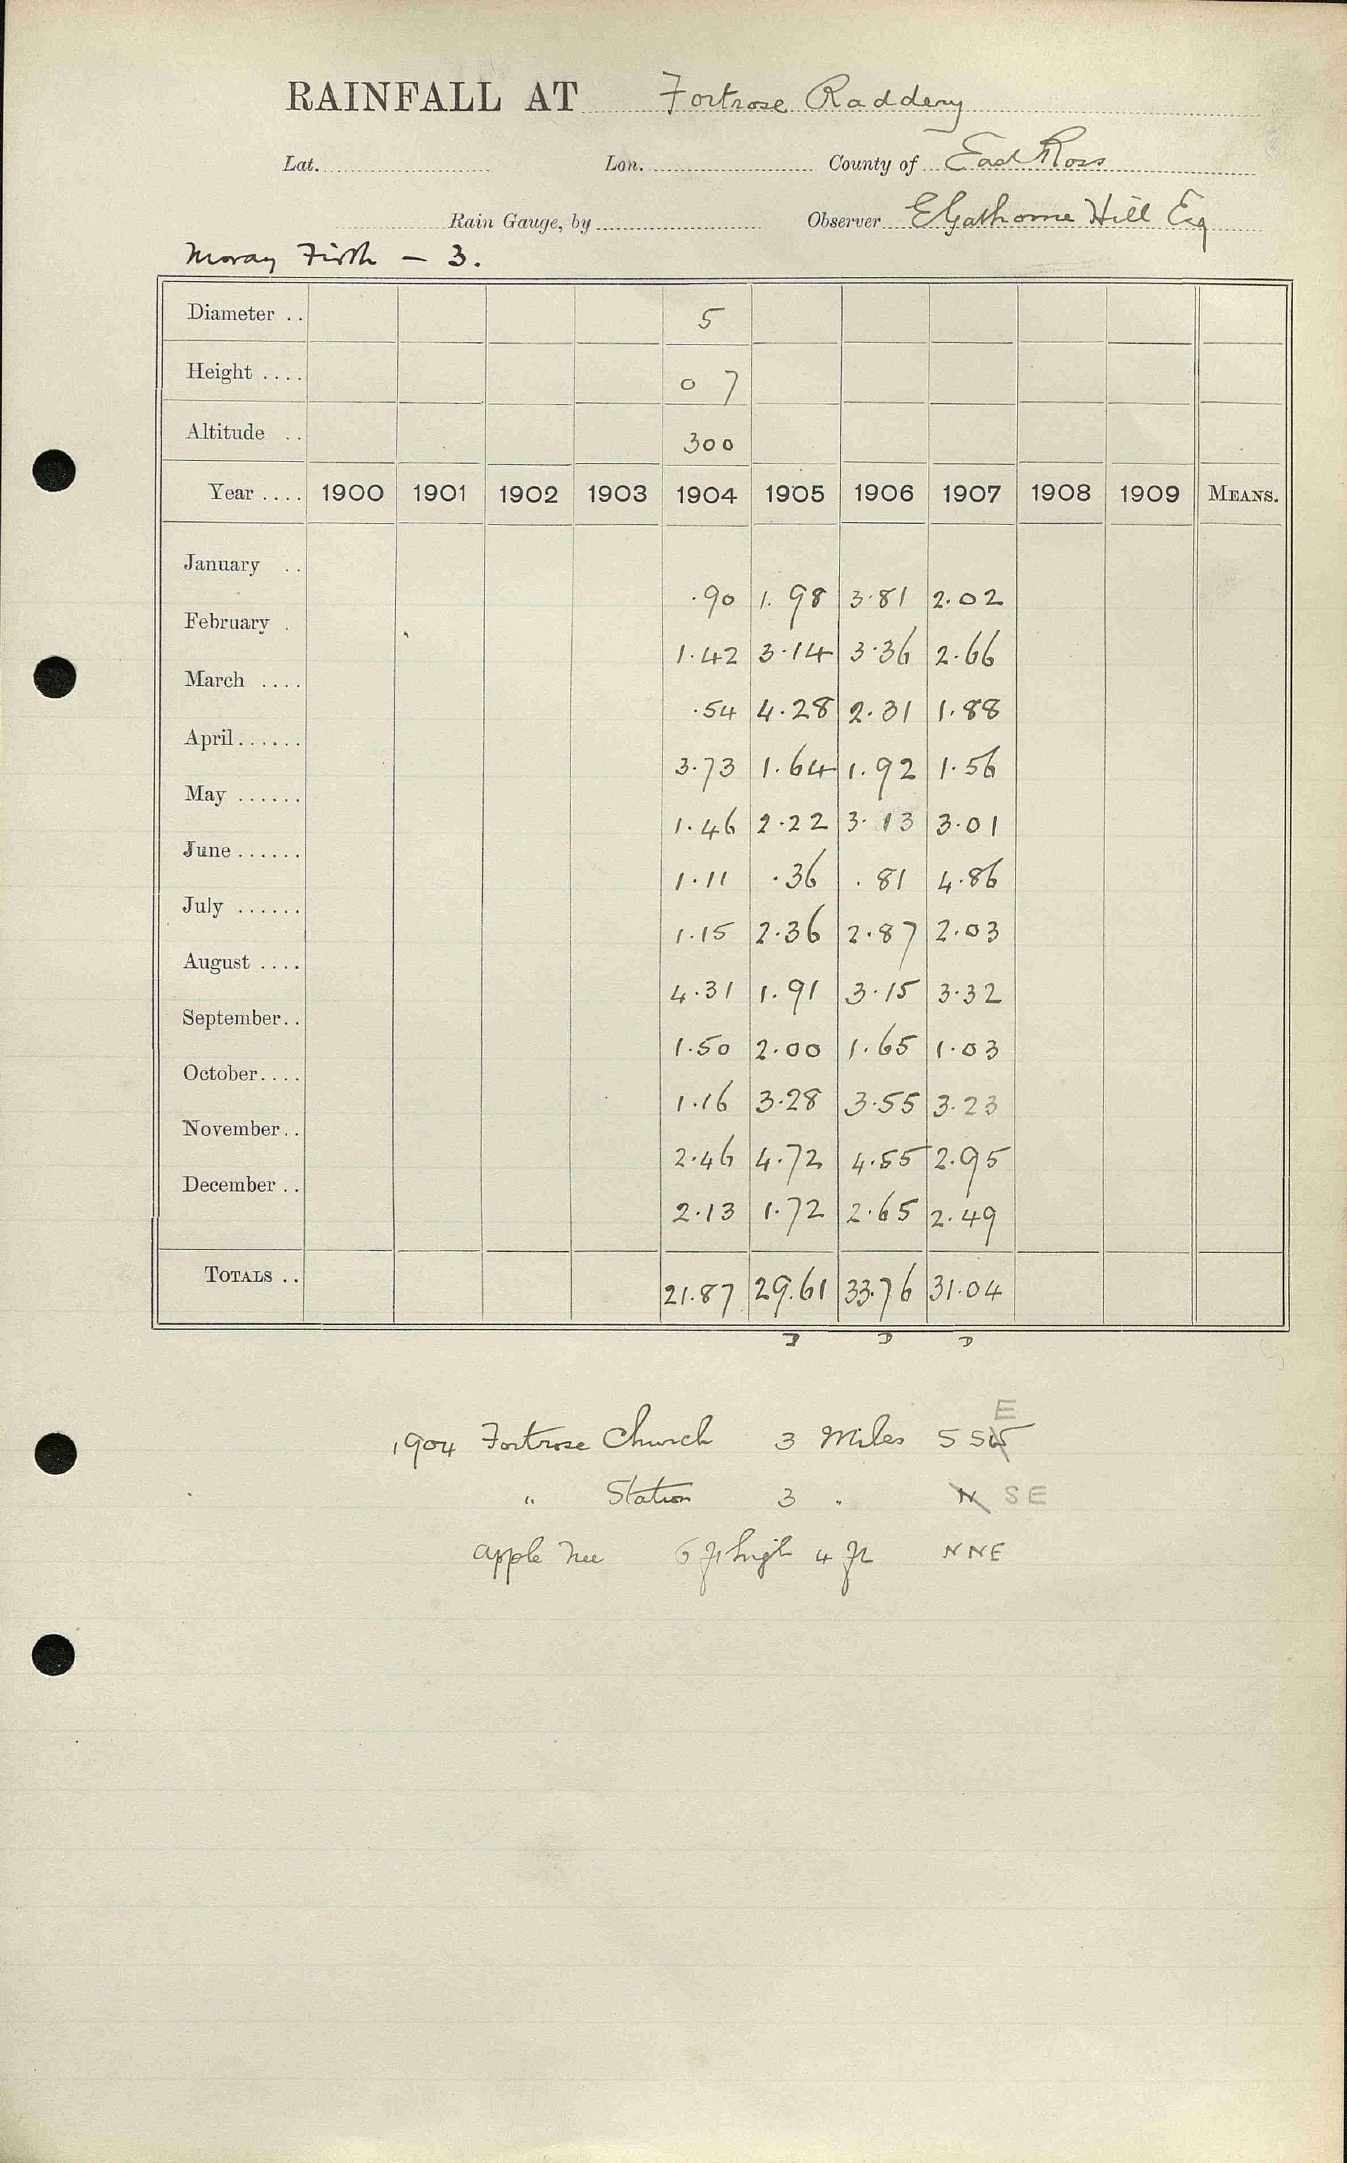 RAINFALL AT Fortrose Raddery
Lat. Lon. County of East Ross
Rain Gauge, by Observer E Gathorne Hill Esq
Moray Firth - 3.
Diameter .. 5
Height .... 0 7
Altitude .. 300
Year .... 1900 1901 1902 1903 1904 1905 1906 1907 1908 1909 MEANS.
January .. .90 1.98 3.81 2.02
February . 1.42 3.14 3.36 2.66
March .... .54 4.28 2.31 1.88
April...... 3.73 1.64 1.92 1.56
May ...... 1.46 2.22 3.13 3.01
June...... 1.11 .36 .81 4.86
July ...... 1.15 2.36 2.87 2.03
August .... 4.31 1.91 3.15 3.32
September.. 1.50 2.00 1.65 1.03
October.... 1.16 3.28 3.55 3.23
November.. 2.46 4.72 4.55 2.95
December .. 2.13 1.72 2.65 2.49
TOTALS .. 21.87 29.61 33.76 31.04
D D D
1904 Fortrose Church 3 Miles S SW E
" Station 3 " N SE
apple tree 6 ft high 4 ft NNE